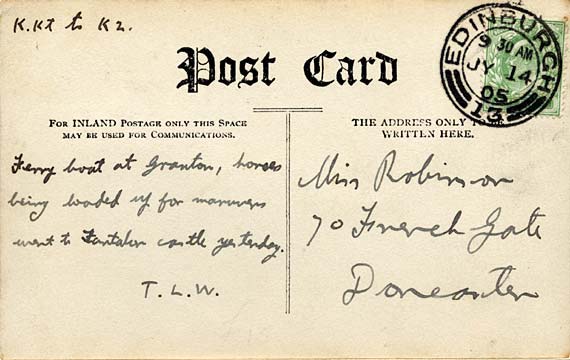 K.K2 to K2.
Post Card
EDINBURGH
9 30 AM
JY 14
05
13
FOR INLAND POSTAGE ONLY THIS SPACE
MAY BE USED FOR COMMUNICATIONS.
THE ADDRESS ONLY TO BE
WRITTEN HERE.
Ferry boat at Granton, horses
being loaded up for manuvers
went to Tantalon castle yesterday.
T.L.W.
Miss Robinson
70 French Gate
Doncaster